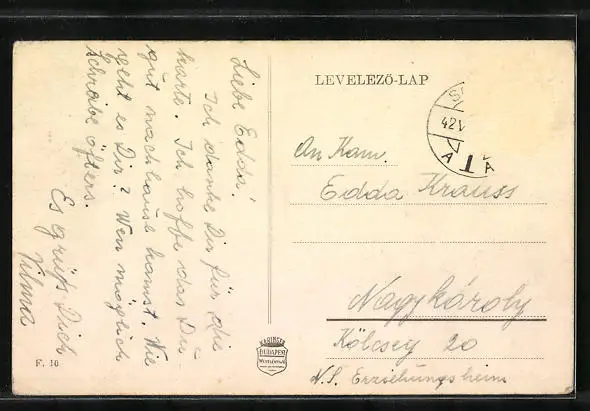 Liebe Edda!
Ich danke Dir für die
Karte. Ich hoffe das Du
gut nachhause kamst. Wie
geht es Dir? Wen möglich
schreibe öfters.
Es grüßt Dich
Vilma
F. 10
LEVELEZŐ-LAP
42 V
A 1 A
An Kam.
Edda Krauss
Nagykároly
Kölcsey 20
N.S. Erziehungsheim
KARINGER
BUDAPEST